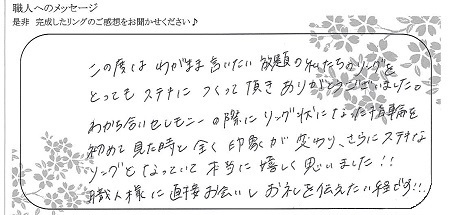 職人へのメッセージ
是非 完成したリングのご感想をお聞かせください♪
この度は わがまま言いたい放題の私たちのリングを
とっても ステキに つくって頂き ありがとうございました。
わかち合いセレモニーの際に リング状になった指輪を
初めて見た時と全く印象が変わり、さらにステキな
リングとなっていて 本当に嬉しく思いました!!
職人様に直接お会いし お礼を伝えたい程です!!